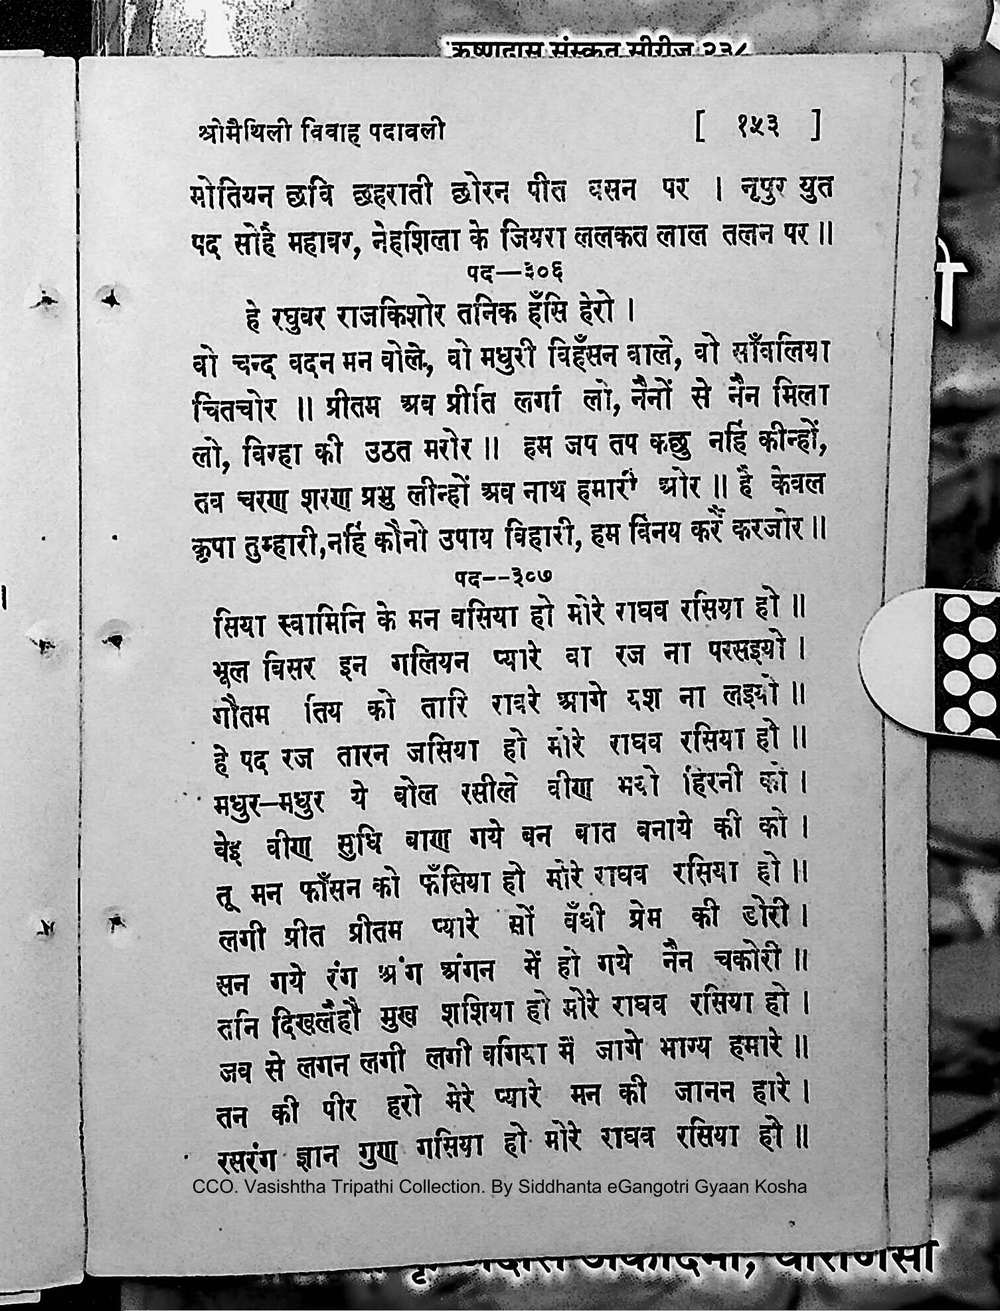 कृष्णदास संस्कृत सीरीज २३८
श्रीमैथिली विवाह पदावली [ १५३ ]
मोतियन छवि छहराती छोरन पीत वसन पर । नूपुर युत
पद सोहै महावर, नेहशिला के जियरा ललकत लाल तलन पर ॥
पद—३०६
हे रघुवर राजकिशोर तनिक हँसि हेरो ।
वो चन्द वदन मन वोले, वो मधुरी विहँसन वाले, वो साँवलिया
चितचोर ॥ प्रीतम अव प्रीति लगा लो, नैनों से नैन मिला
लो, विरहा की उठत मरोर ॥ हम जप तप कछु नहिं कीन्हों,
तव चरण शरण प्रभु लीन्हों अव नाथ हमारी ओर ॥ है केवल
कृपा तुम्हारी,नहिं कौनो उपाय विहारी, हम विनय करैं करजोर ॥
पद--३०७
सिया स्वामिनि के मन वसिया हो मोरे राघव रसिया हो ॥
भूल विसर इन गलियन प्यारे वा रज ना परसइयो ।
गौतम तिय को तारि रावरे आगे यश ना लइयो ॥
हे पद रज तारन जसिया हो मोरे राघव रसिया हो ॥
मधुर—मधुर ये वोल रसीले वीण भयो हिरनी को ।
वेइ वीण सुधि बाण गये बन बात बनाये की को ।
तू मन फाँसन को फँसिया हो मोरे राघव रसिया हो ॥
लगी प्रीत प्रीतम प्यारे सों बँधी प्रेम की डोरी ।
सन गये रंग अंग अंगन में हो गये नैन चकोरी ॥
तनि दिखलैहौ मुख शशिया हो मोरे राघव रसिया हो ।
जव से लगन लगी लगी वगिया मैं जागे भाग्य हमारे ॥
तन की पीर हरो मेरे प्यारे मन की जानन हारे ।
रसरंग ज्ञान गुण गसिया हो मोरे राघव रसिया हो ॥
CCO. Vasishtha Tripathi Collection. By Siddhanta eGangotri Gyaan Kosha